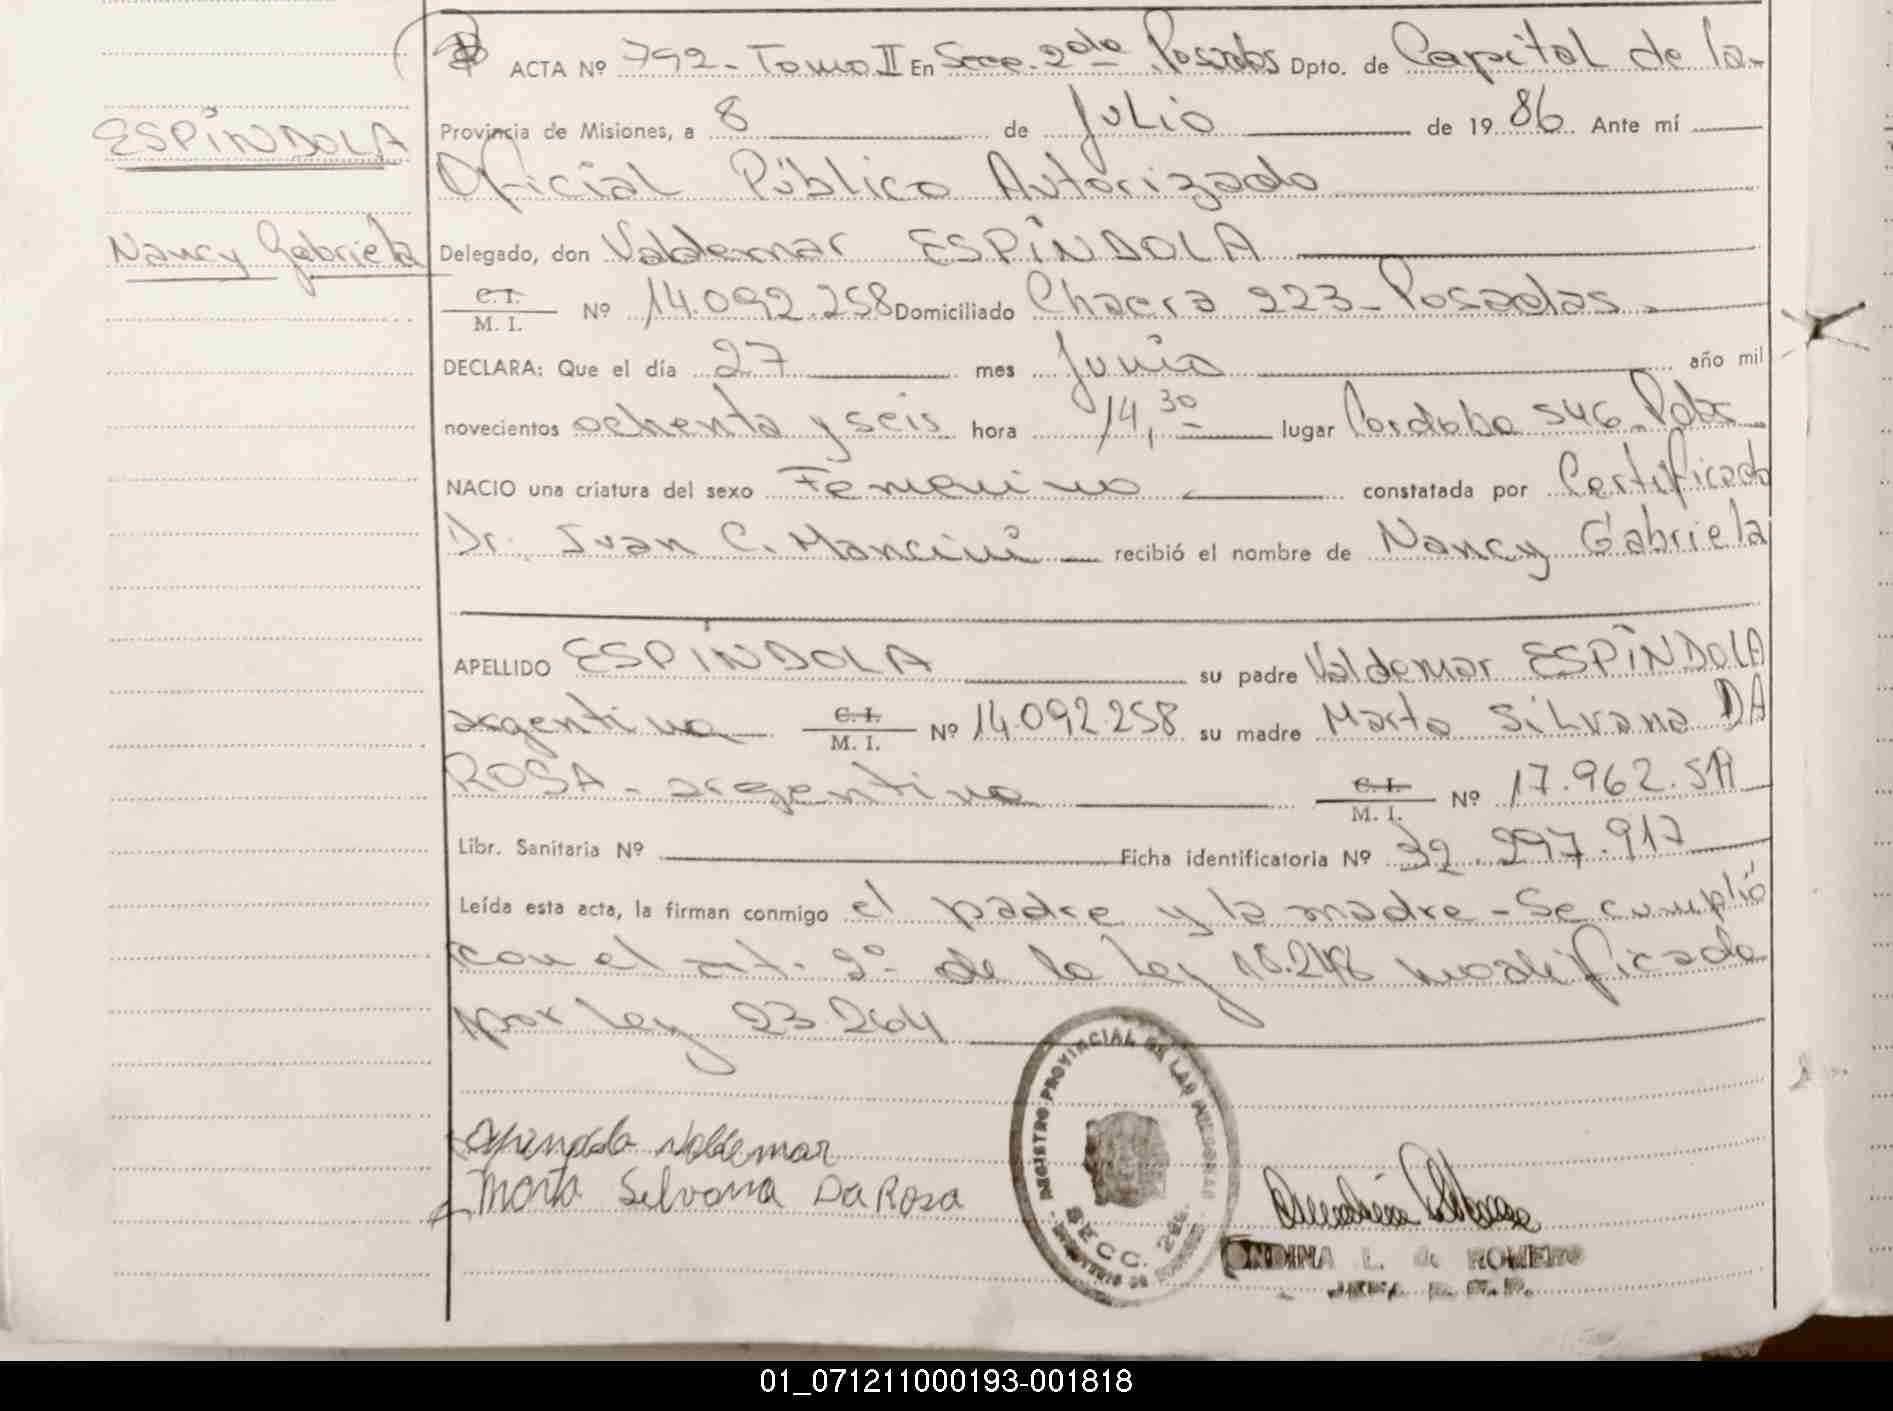 ACTA Nº 792 - Tomo II En Secc. 2da Posadas Dpto. de Capital de la
ESPÍNDOLA
Provincia de Misiones, a 8 de Julio de 19 86. Ante mí
Oficial Público Autorizado
Nancy Gabriela
Delegado, don Valdemar ESPÍNDOLA
C. I.
M. I. Nº 14.092.258 Domiciliado Chacra 223 - Posadas -
DECLARA: Que el día 27 mes Junio año mil
novecientos ochenta y seis hora 14,30 lugar Cordoba 546 - Pdas
NACIO una criatura del sexo Femenino constatada por Certificado
Dr. Juan C. Mancini recibió el nombre de Nancy Gabriela
APELLIDO ESPÍNDOLA su padre Valdemar ESPÍNDOLA
argentino C. I.
M. I. Nº 14.092.258 su madre Marta Silvana DA
ROSA - argentina C. I.
M. I. Nº 17.962.
Libr. Sanitaria Nº Ficha identificatoria Nº 32.297.917
Leída esta acta, la firman conmigo el padre y la madre - Se cumplió
con el art. 2º de la Ley 18.248 modificado
por Ley 23.264
Espindola Valdemar
Marta Silvana Da Rosa
REGISTRO PROVINCIAL DE LAS PERSONAS
SECC. 2da.
ONDINA L. de ROMERO
01_071211000193-001818